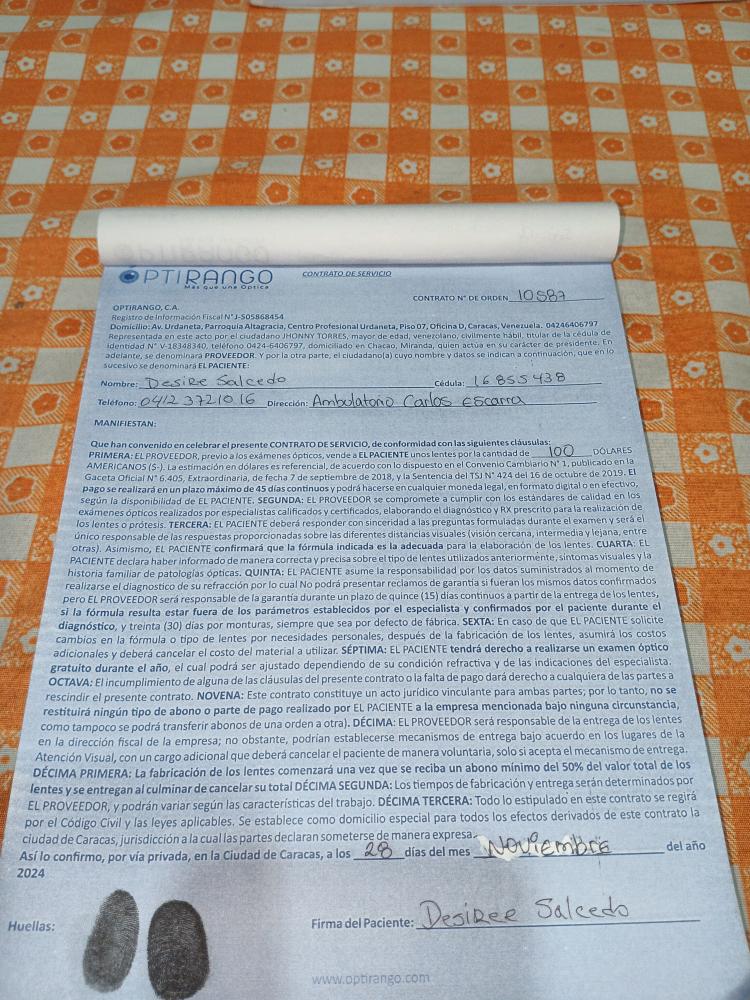 OPTIRANGO
Más que una Óptica
CONTRATO DE SERVICIO
CONTRATO N° DE ORDEN 10587
OPTIRANGO, C.A.
Registro de Información Fiscal N°J-505868454
Domicilio: Av. Urdaneta, Parroquia Altagracia, Centro Profesional Urdaneta, Piso 07, Oficina D, Caracas, Venezuela. 04246406797
Representada en este acto por el ciudadano JHONNY TORRES, mayor de edad, venezolano, civilmente hábil, titular de la cédula de
identidad N° V-18348340, teléfono 0424-6406797, domiciliado en Chacao, Miranda, quien actúa en su carácter de presidente. En
adelante, se denominará PROVEEDOR. Y por la otra parte, el ciudadano(a) cuyo nombre y datos se indican a continuación, que en lo
sucesivo se denominará EL PACIENTE:
Nombre: Desire Salcedo Cédula: 16855438
Teléfono: 0412 3721016 Dirección: Ambulatorio Carlos Escarra
MANIFIESTAN:
Que han convenido en celebrar el presente CONTRATO DE SERVICIO, de conformidad con las siguientes cláusulas:
PRIMERA: EL PROVEEDOR, previo a los exámenes ópticos, vende a EL PACIENTE unos lentes por la cantidad de 100 DÓLARES
AMERICANOS ($-). La estimación en dólares es referencial, de acuerdo con lo dispuesto en el Convenio Cambiario N° 1, publicado en la
Gaceta Oficial N° 6.405, Extraordinaria, de fecha 7 de septiembre de 2018, y la Sentencia del TSJ N° 424 del 16 de octubre de 2019. El
pago se realizará en un plazo máximo de 45 días continuos y podrá hacerse en cualquier moneda legal, en formato digital o en efectivo,
según la disponibilidad de EL PACIENTE. SEGUNDA: EL PROVEEDOR se compromete a cumplir con los estándares de calidad en los
exámenes ópticos realizados por especialistas calificados y certificados, elaborando el diagnóstico y RX prescrito para la realización de
los lentes o prótesis. TERCERA: EL PACIENTE deberá responder con sinceridad a las preguntas formuladas durante el examen y será el
único responsable de las respuestas proporcionadas sobre las diferentes distancias visuales (visión cercana, intermedia y lejana, entre
otras). Asimismo, EL PACIENTE confirmará que la fórmula indicada es la adecuada para la elaboración de los lentes. CUARTA: EL
PACIENTE declara haber informado de manera correcta y precisa sobre el tipo de lentes utilizados anteriormente, síntomas visuales y la
historia familiar de patologías ópticas. QUINTA: EL PACIENTE asume la responsabilidad por los datos suministrados al momento de
realizarse el diagnostico de su refracción por lo cual No podrá presentar reclamos de garantía si fueran los mismos datos confirmados
pero EL PROVEEDOR será responsable de la garantía durante un plazo de quince (15) días continuos a partir de la entrega de los lentes,
si la fórmula resulta estar fuera de los parámetros establecidos por el especialista y confirmados por el paciente durante el
diagnóstico, y treinta (30) días por monturas, siempre que sea por defecto de fábrica. SEXTA: En caso de que EL PACIENTE solicite
cambios en la fórmula o tipo de lentes por necesidades personales, después de la fabricación de los lentes, asumirá los costos
adicionales y deberá cancelar el costo del material a utilizar. SÉPTIMA: EL PACIENTE tendrá derecho a realizarse un examen óptico
gratuito durante el año, el cual podrá ser ajustado dependiendo de su condición refractiva y de las indicaciones del especialista.
OCTAVA: El incumplimiento de alguna de las cláusulas del presente contrato o la falta de pago dará derecho a cualquiera de las partes a
rescindir el presente contrato. NOVENA: Este contrato constituye un acto jurídico vinculante para ambas partes; por lo tanto, no se
restituirá ningún tipo de abono o parte de pago realizado por EL PACIENTE a la empresa mencionada bajo ninguna circunstancia,
como tampoco se podrá transferir abonos de una orden a otra). DÉCIMA: EL PROVEEDOR será responsable de la entrega de los lentes
en la dirección fiscal de la empresa; no obstante, podrían establecerse mecanismos de entrega bajo acuerdo en los lugares de la
Atención Visual, con un cargo adicional que deberá cancelar el paciente de manera voluntaria, solo si acepta el mecanismo de entrega.
DÉCIMA PRIMERA: La fabricación de los lentes comenzará una vez que se reciba un abono mínimo del 50% del valor total de los
lentes y se entregan al culminar de cancelar su total DÉCIMA SEGUNDA: Los tiempos de fabricación y entrega serán determinados por
EL PROVEEDOR, y podrán variar según las características del trabajo. DÉCIMA TERCERA: Todo lo estipulado en este contrato se regirá
por el Código Civil y las leyes aplicables. Se establece como domicilio especial para todos los efectos derivados de este contrato la
ciudad de Caracas, jurisdicción a la cual las partes declaran someterse de manera expresa.
Así lo confirmo, por vía privada, en la Ciudad de Caracas, a los 28 días del mes Noviembre del año
2024
Huellas: Firma del Paciente: Desiree Salcedo
www.optirango.com